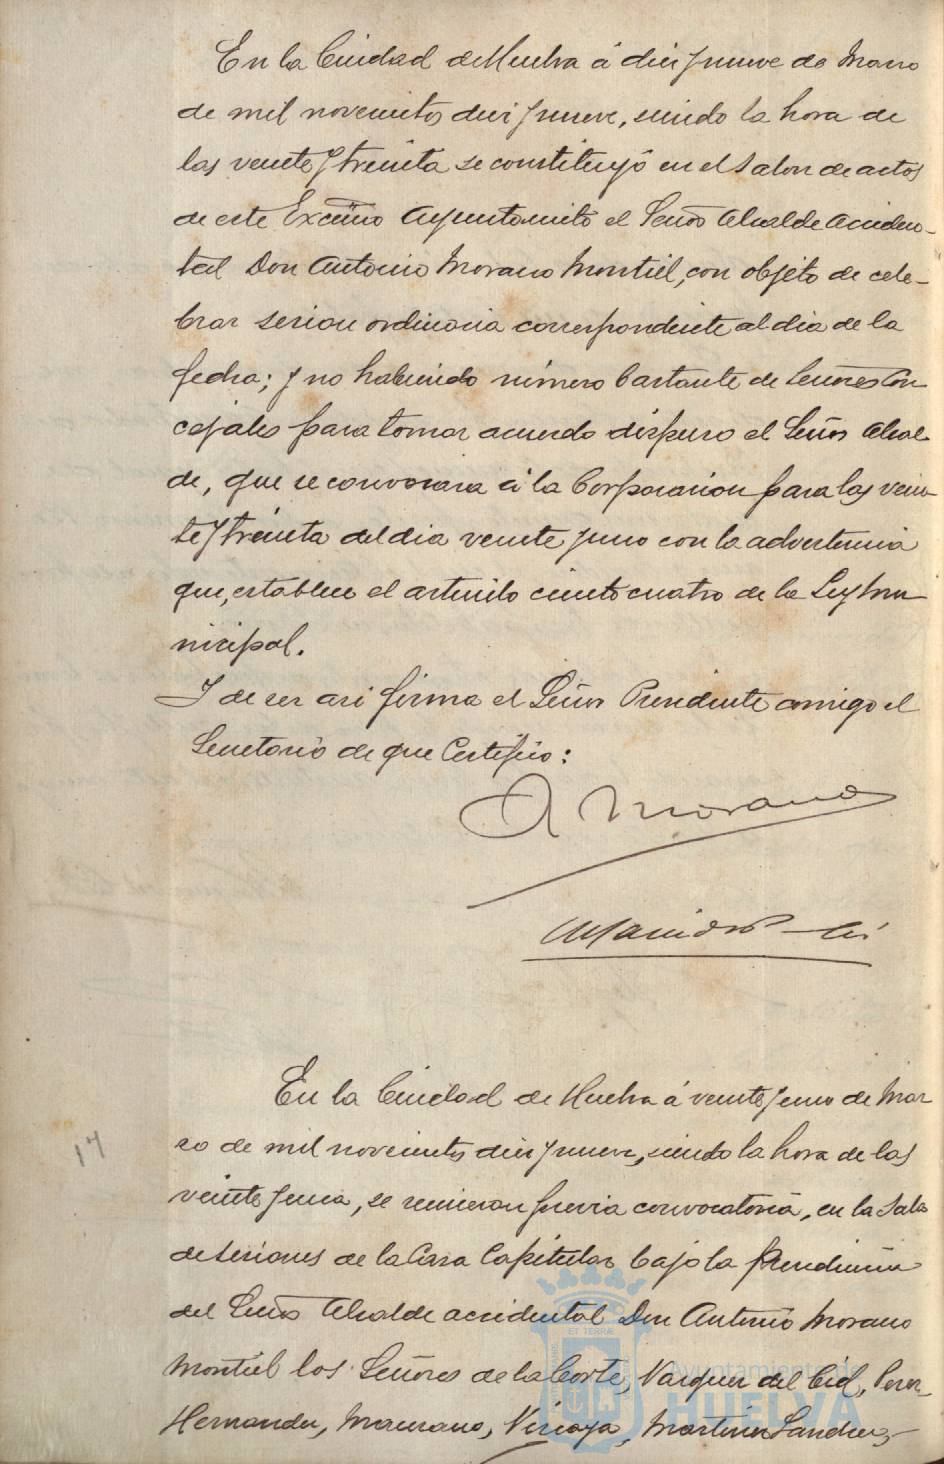 En la Ciudad de Huelva á diez y nueve de Marzo
de mil novecientos diez y nueve, siendo la hora de
las veinte y treinta se constituyó en el salon de actos
de este Excmo Ayuntamiento el Señor Alcalde acciden-
tal Don Antonio Morano Montiel, con objeto de cele-
brar sesion ordinaria correspondiente al dia de la
fecha; y no habiendo número bastante de Señores Con
cejales para tomar acuerdo dispuso el Señor Alcal
de, que se convocara á la Corporacion para las vein-
te y treinta del dia veinte y uno con la advertencia
que, establece el artículo ciento cuatro de la Ley Mu
nicipal.
Y de ser asi firma el Señor Presidente comigo el
Secretario de que Certifico:
A Morano
En la Ciudad de Huelva á veinte y uno de Mar
zo de mil novecientos diez y nueve, siendo la hora de las
veinte y una, se reunieron previa convocatoria, en la Sala
de sesiones de la Casa Capitular bajo la presidencia
del Señor Alcalde accidental Don Antonio Morano
Montiel los Señores de la Corte, Vazquez del Cid, Perez
Hernandez, Manzano, Vizcaya, Martinez Sanchez,
17
ET TERRÆ
Ayuntamiento de
HUELVA